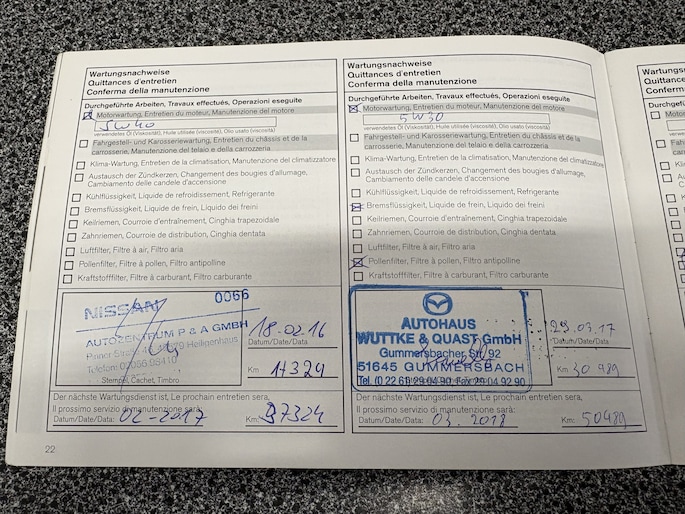 Wartungsnachweise
Quittances d'entretien
Conferma della manutenzione
Durchgeführte Arbeiten, Travaux effectués, Operazioni eseguite
Motorwartung, Entretien du moteur, Manutenzione del motore
5W40
verwendetes Öl (Viskosität), Huile utilisée (viscosité), Olio usato (viscosità)
Fahrgestell- und Karosseriewartung, Entretien du châssis et de la
carrosserie, Manutenzione del telaio e della carrozzeria
Klima-Wartung, Entretien de la climatisation, Manutenzione del climatizzatore
Austausch der Zündkerzen, Changement des bougies d'allumage,
Cambiamento delle candele d'accensione
Kühlflüssigkeit, Liquide de refroidissement, Refrigerante
Bremsflüssigkeit, Liquide de frein, Liquido dei freini
Keilriemen, Courroie d'entraînement, Cinghia trapezoidale
Zahnriemen, Courroie de distribution, Cinghia dentata
Luftfilter, Filtre à air, Filtro aria
Pollenfilter, Filtre à pollen, Filtro antipolline
Kraftstofffilter, Filtre à carburant, Filtro carburante
NISSAN 0066
AUTOZENTRUM P & A GMBH
Heiligenhaus
Telefon
Stempel, Cachet, Timbro
18.02.16
Datum/Date/Data
Km:
Der nächste Wartungsdienst ist, Le prochain entretien sera,
Il prossimo servizio di manutenzione sarà:
Datum/Date/Data: 02-2017 Km: 37324
22
Wartungsnachweise
Quittances d'entretien
Conferma della manutenzione
Durchgeführte Arbeiten, Travaux effectués, Operazioni eseguite
Motorwartung, Entretien du moteur, Manutenzione del motore
5W30
verwendetes Öl (Viskosität), Huile utilisée (viscosité), Olio usato (viscosità)
Fahrgestell- und Karosseriewartung, Entretien du châssis et de la
carrosserie, Manutenzione del telaio e della carrozzeria
Klima-Wartung, Entretien de la climatisation, Manutenzione del climatizzatore
Austausch der Zündkerzen, Changement des bougies d'allumage,
Cambiamento delle candele d'accensione
Kühlflüssigkeit, Liquide de refroidissement, Refrigerante
Bremsflüssigkeit, Liquide de frein, Liquido dei freini
Keilriemen, Courroie d'entraînement, Cinghia trapezoidale
Zahnriemen, Courroie de distribution, Cinghia dentata
Luftfilter, Filtre à air, Filtro aria
Pollenfilter, Filtre à pollen, Filtro antipolline
Kraftstofffilter, Filtre à carburant, Filtro carburante
AUTOHAUS
WUTTKE & QUAST GmbH
Gummersbacher Str. 92
51645 GUMMERSBACH
Tel. (0 22 61) 29 04 90 Fax 29 04 92 90
29.03.17
Datum/Date/Data
Km: 30 489
Der nächste Wartungsdienst ist, Le prochain entretien sera,
Il prossimo servizio di manutenzione sarà:
Datum/Date/Data: 03.2018 Km: 50489